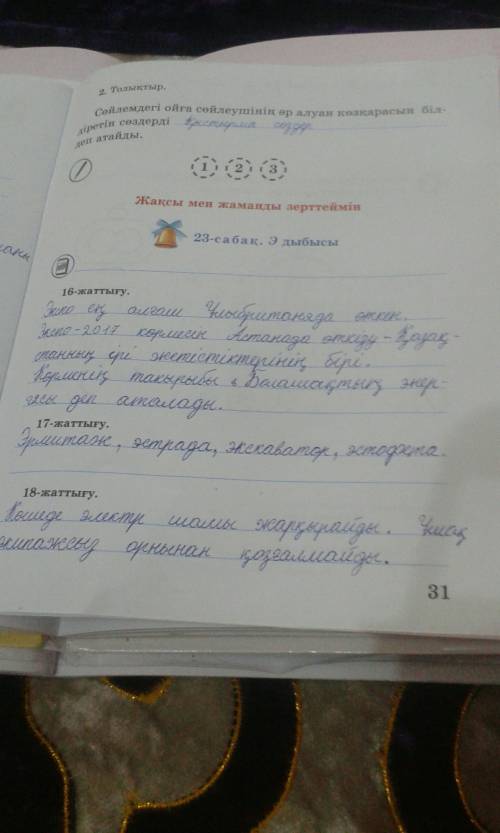 2. Толықтыр.
Сөйлемдегі ойға сөйлеушінің әр алуан көзқарасын біл-
діретін сөздерді Қыстырма сөздер
деп атайды.
1 2 3
Жақсы мен жаманды зерттеймін
23-сабақ. Э дыбысы
16-жаттығу.
Экпо ең алғаш Ұлыбританияда өткен.
Экспо-2017 көрмесін Астанада өткізу – Қазақ-
станның ірі жетістіктерінің бірі.
Көрменің тақырыбы Болашақтың энер-
гиясы деп аталады.
17-жаттығу.
Эрмитаж, эстрада, экскаватор, эстафета.
18-жаттығу.
Көшеде электр шамы жарқырайды. Ұшақ
экипажсыз орнынан қозғалмайды.
31